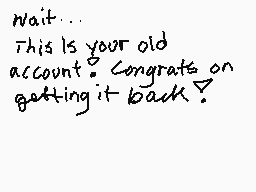 wait...
This Is your old
account! Congrats on
getting it back!